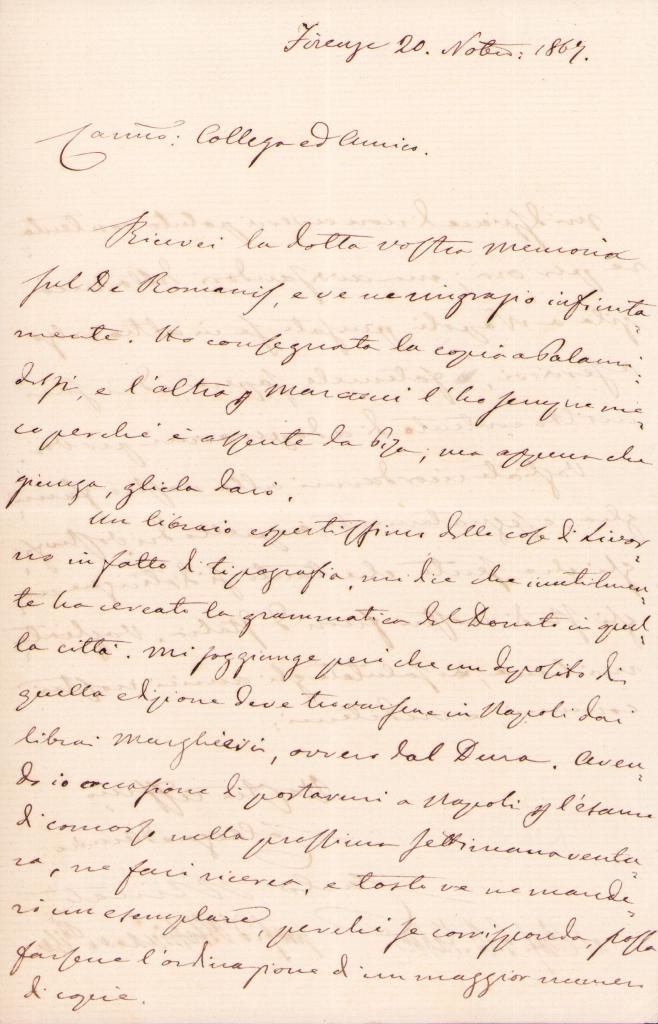 Firenze 20. Nobre: 1867.
Carmo: Collega ed Amico.
Ricevei la dotta vostra memoria
sul De Romanis, e ve ne ringrazio infinita-
mente. Ho consegnata la copia a Palami-
dessi, e l'altra p Marcacci l'ho sempre me-
co perchè è assente da Pisa; ma appena che
giunga, gliela darò.
Un libraio espertissimo delle cose di Livor-
no in fatto di tipografia, mi dice che inutilmen-
te ha cercato la grammatica del Donato in quel-
la città. Mi soggiunge però che un deposito di
quella edizione deve trovarsene in Napoli dai
librai Marghieri, ovvero dal Dura. Aven-
do io occasione di portarmi a Napoli p l'esame
di concorso nella prossima settimana ventu-
ra, ne farò ricerca, e tosto ve ne mande-
rò un esemplare, perchè se corrisponda, possa
farsene l'ordinazione di un maggior numero
di copie.